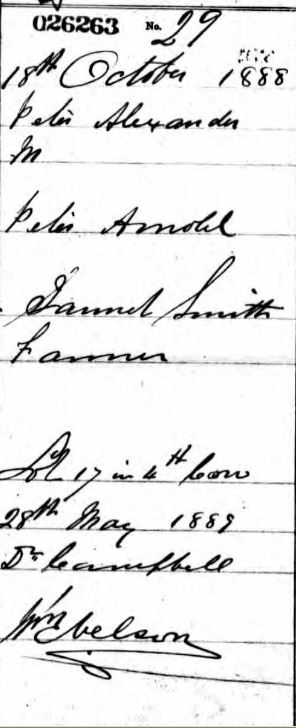 026263 No. 29
18th October 1888
Peter Alexander
M
Peter Arnold
Jannet Smith
Farmer
Lot 17 in 4th Con
28th May 1889
Dr Campbell
Wm